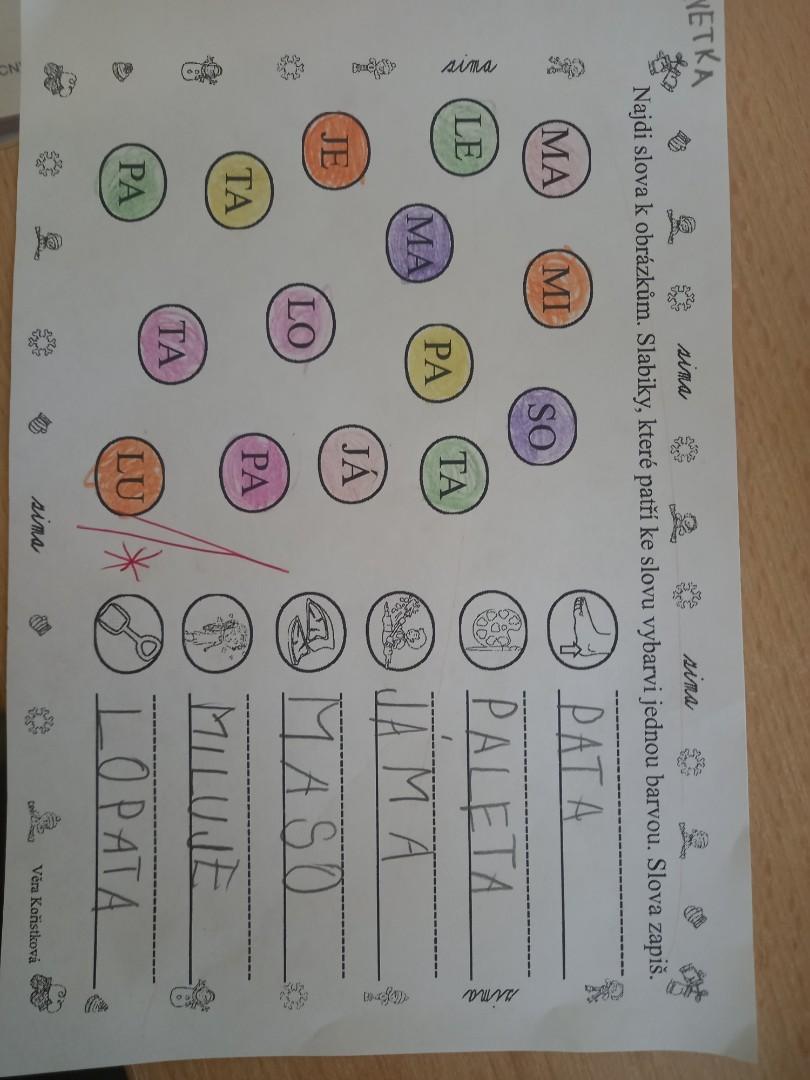 zima zima
Najdi slova k obrázkům. Slabiky, které patří ke slovu vybarvi jednou barvou. Slova zapiš.
MA MI SO
PATA
zima LE PA TA
PALETA zima
MA
JE LO JÁ
JÁMA
MASO
TA PA
MILUJE
PA TA LU
LOPATA
zima Věra Kořistková